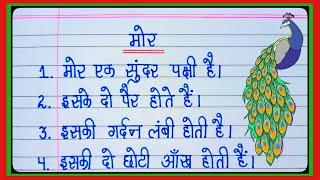 मोर
1. मोर एक सुंदर पक्षी है।
2. इसके दो पैर होते हैं।
3. इसकी गर्दन लंबी होती है।
4. इसकी दो छोटी आँख होती हैं।